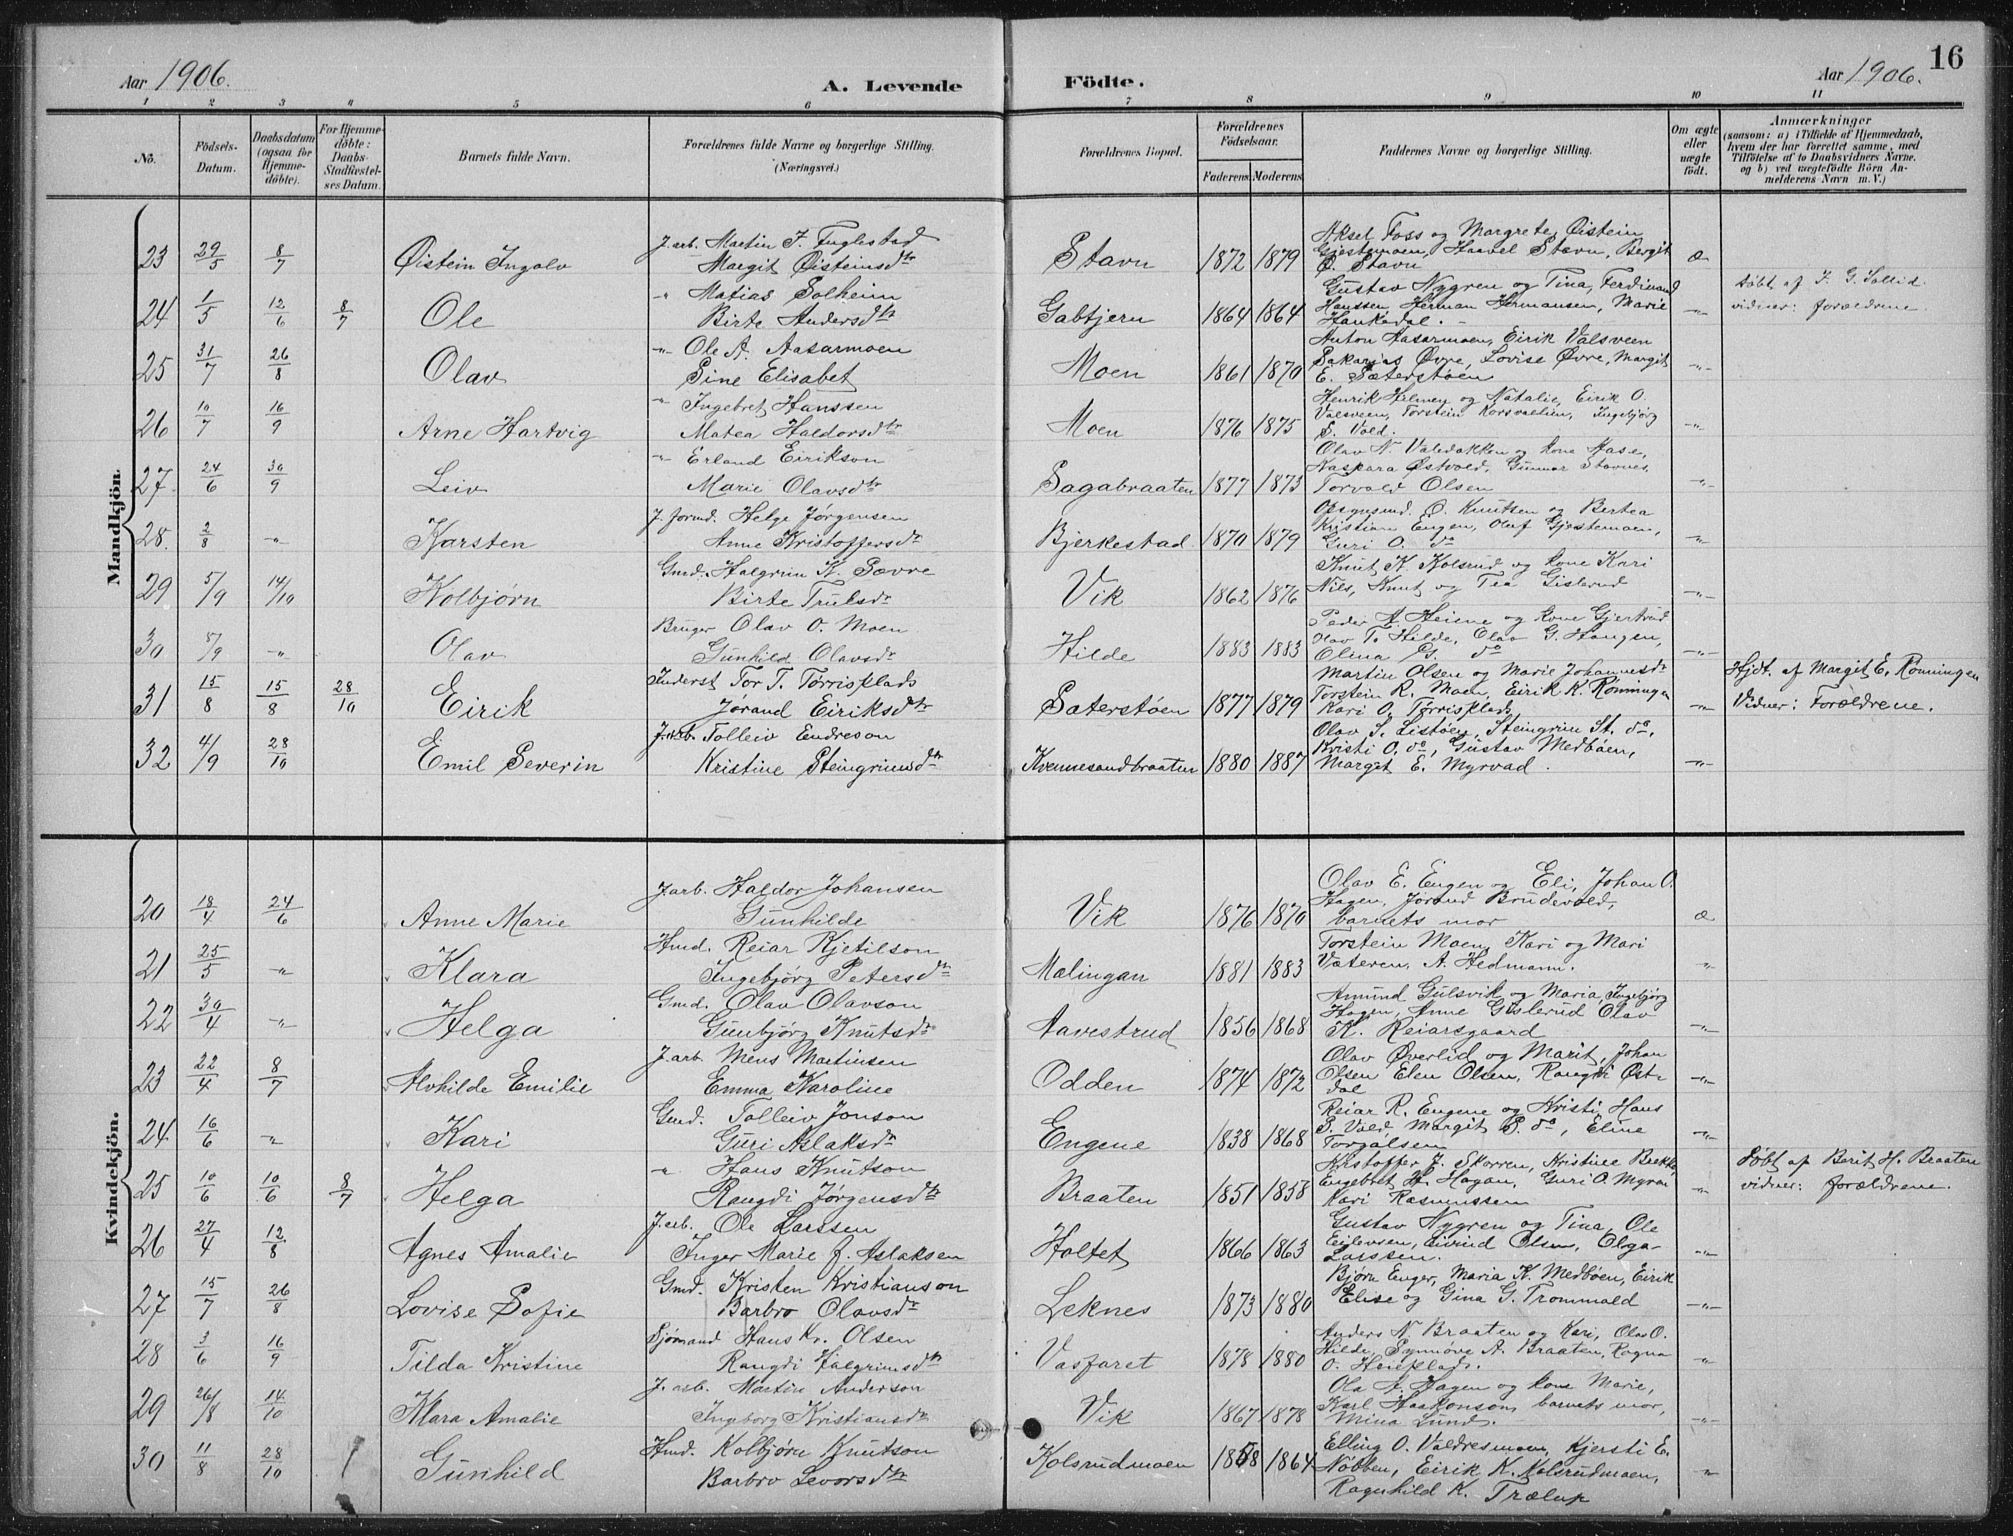 Aar 1906.
A. Levende Födte.
Aar 1906.
16
1 2 3 4 5 6 7 8 9 10 11
No.
Födsels-Datum.
Daabsdatum (ogsaa for Hjemme-döbte).
For Hjemme-döbte: Daabs-Stadfæstel-ses Datum.
Barnets fulde Navn.
Forældrenes fulde Navne og borgerlige Stilling.
(Næringsvei.)
Forældrenes Bopæl.
Forældrenes Födselsaar.
Faderens Moderens
Faddernes Navne og borgerlige Stilling.
Om ægte eller uægte födt.
Anmærkninger
(saasom: a) i Tilfælde af Hjemmedaab,
hvem der har forrettet samme, med
Tilföielse af to Daabsvidners Navne,
og b) ved uægtefödte Börn An-
melderens Navn m. V.)
Mandkjön.
23 29/5 8/7 Øistein Ingolv J. arb. Martin F. Fuglestad
Margit Øisteinsdtr Stavn 1872 1879 Aksel Foss og Margrete, Øistein
Gjestemoen, Haavel Stavn, Bergit
Ø. Stavn æ
24 1/5 12/6 8/7 Ole " Matias Solheim
Birte Andersdtr Gabtjern 1864 1864 Gustav Nygren og Tina, Ferdinand
Hanssen, Herman Hermansen, Marie
Haukedal. -"- døbt af F. G. Sollid.
vidner: forældrene
25 31/7 26/8 Olav -"- Ole A. Aasarmoen
Sine Elisabet Moen 1861 1870 Anton Aasarmoen, Eirik Valsveen
Sakarias Øvre, Lovise Øvre, Margit
E. Sæterstøen -"-
26 10/7 16/9 Arne Hartvig " Ingebret Hanssen
Matea Haldorsdtr Moen 1876 1875 Henrik Helmey og Natalie, Eirik O.
Valsveen, Torstein Korsvallien, Ingebjørg
S. Vold. -"-
27 24/6 30/9 Leiv -"- Erland Eirikson
Marie Olavsdtr Sagabraaten 1877 1873 Olav N. Valdakken og kone Aase,
Kaspara Østvold, Gunnar Stavnes,
Torvald Olsen -"-
28. 2/8 -"- Karsten J. formd. Helge Jørgensen
Anne Kristoffersdtr Bjerkestad 1870 1879 O. Knutsen og Bertea
Kristian Engen, Olaf Gjestemoen,
Guri O. do -"-
29 5/9 14/10 Kolbjørn Gmd. Halgrim K. Sævre
Birte Trulsdr Vik 1862 1876 Knut K. Kolsrud og kone Kari
Nils, Knut og Tea Gislerud -"-
30 5/9 -"- Olav Bruger Olav O. Moen
Gunhild Olavsdr Hilde 1883 1883 Peder A. Heiene og kone Gjertrud
Olav T. Hilde, Olav G. Haugen,
Olina G. do -"-
31 15/8 15/8 28/10 Eirik Inderst Tor T. Tørrisplads
Jorand Eiriksdtr Sæterstøen 1877 1879 Martin Olsen og Marie Johannesdr
Torstein R. Moen, Eirik K. Rønningen
Kari O. Tørrisplads -"- Hjdt. af Margit E. Rønningen
Vidner: Forældrene.
32 4/9 28/10 Emil Severin J. arb. Tolleiv Endreson
Kristine Steingrimsdtr Kvennesandbraaten 1880 1887 Olav S. Listøen, Steingrim St. do,
Kristi O. do, Gustav Medbøen,
Marget E. Myrvad. -"-
Kvindekjön.
20 18/4 24/6 Anne Marie J. arb. Haldor Johansen
Gunhilde Vik 1876 1870 Olav E. Engen og Eli, Johan O.
Hagen, Jørand Brudevold,
barnets mor æ
21 25/5 -"- Klara Hmd. Reiar Kjetilson
Ingebjørg Petersdtr Malingan 1881 1883 Torstein Moen, Kari og Mari
Væteren, A. Hedmann. -"-
22 30/4 -"- Helga Gmd. Olav Olavson
Gunbjørg Knutsdr Aavestrud 1856 1868 Amund Gulsvik og Maria, Ingebjørg
Hagen, Anne Gislerud Olav
K. Reiarsgaard -"-
23 22/4 8/7 Alvhilde Emilie J. arb. Mens Martinsen
Emma Karoline Odden 1874 1872 Olav Øverlid og Marit, Johan
Olsen Elen Olsen, Rangdi Øst-
dal -"-
24 16/6 -"- Kari Gmd. Tolleiv Jonson
Guri Aslaksdr Engene 1838 1868 Reiar R. Engene og Kristi, Hans
P. Vold Margit P. do, Eline
Torgalsen -"-
25 10/6 10/6 8/7 Helga -"- Hans Knutson
Rangdi Jørgensdtr Braaten 1851 1858 Kristoffer J. Skorren, Kristine Brekke,
Engebret H. Hagan, Guri O. Myran
Kari Rasmussen -"- Døbt af Berit H. Braaten
vidner: forældrene.
26 27/4 12/8 Agnes Amalie J. arb. Ole Larssen
Inger Marie J. Aslaksen Holtet 1866 1863 Gustav Nygren og Tina, Ole
Eilevsen, Eivind Olsen, Olga
Larssen. -"-
27 15/7 26/8 Lovise Sofie Gmd. Kristen Kristianson
Barbro Olavsdr Leknes 1873 1880 Bjørn Enger, Maria K. Medbøen, Eirik
Elise og Gina G. Trommald -"-
28 3/6 16/9 Tilda Kristine Sjømand Hans Kr. Olsen
Rangdi Halgrimsdtr Vasfaret 1878 1880 Anders N. Braaten og Kari, Olav O.
Hilde, Synnøve A. Braaten, Ragna
O. Heieplads. -"-
29 26/8 14/10 Klara Amalie J. arb. Martin Anderson
Ingeborg Kristiansdr Vik 1867 1878 Ola A. Hagen og kone Marie,
Karl Haakonson, barnets mor,
Mina Lund. -"-
30 11/8 28/10 Gunhild Hmd. Kolbjørn Knutson
Barbro Levorsdtr Kolsrudmoen 1858 1864 Elling O. Valdresmoen, Kjersti E.
Nøbben, Eirik K. Kolsrudmoen,
Ragnhild K. Trælup -"-